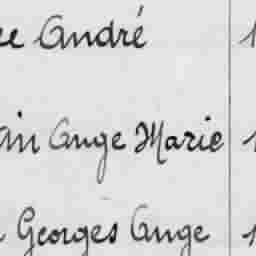 ee André 1
ain Ange Marie 1
Georges Ange 1